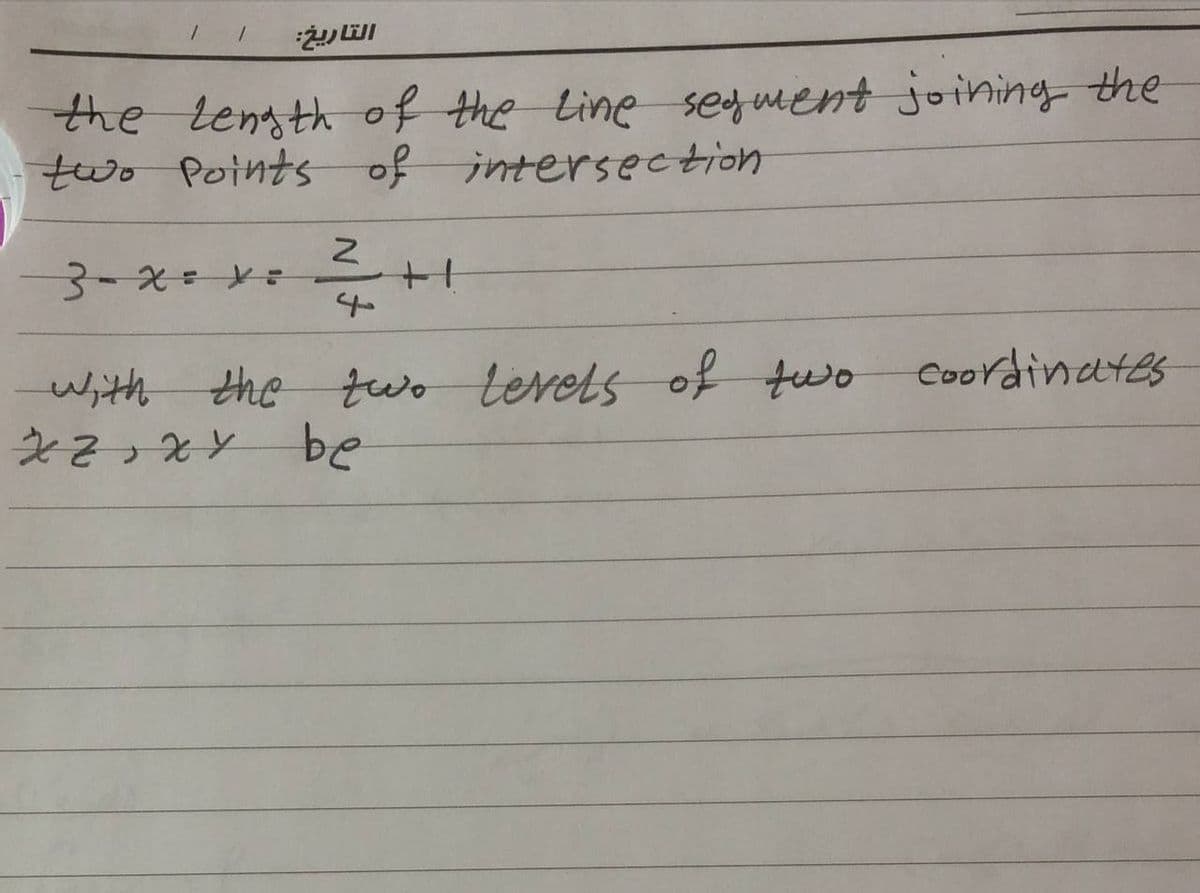 التاريخ: / /
the length of the line segment joining the
two Points of intersection
3-x = y = z/4 +1
with the two levels of two coordinates
xz, xy be